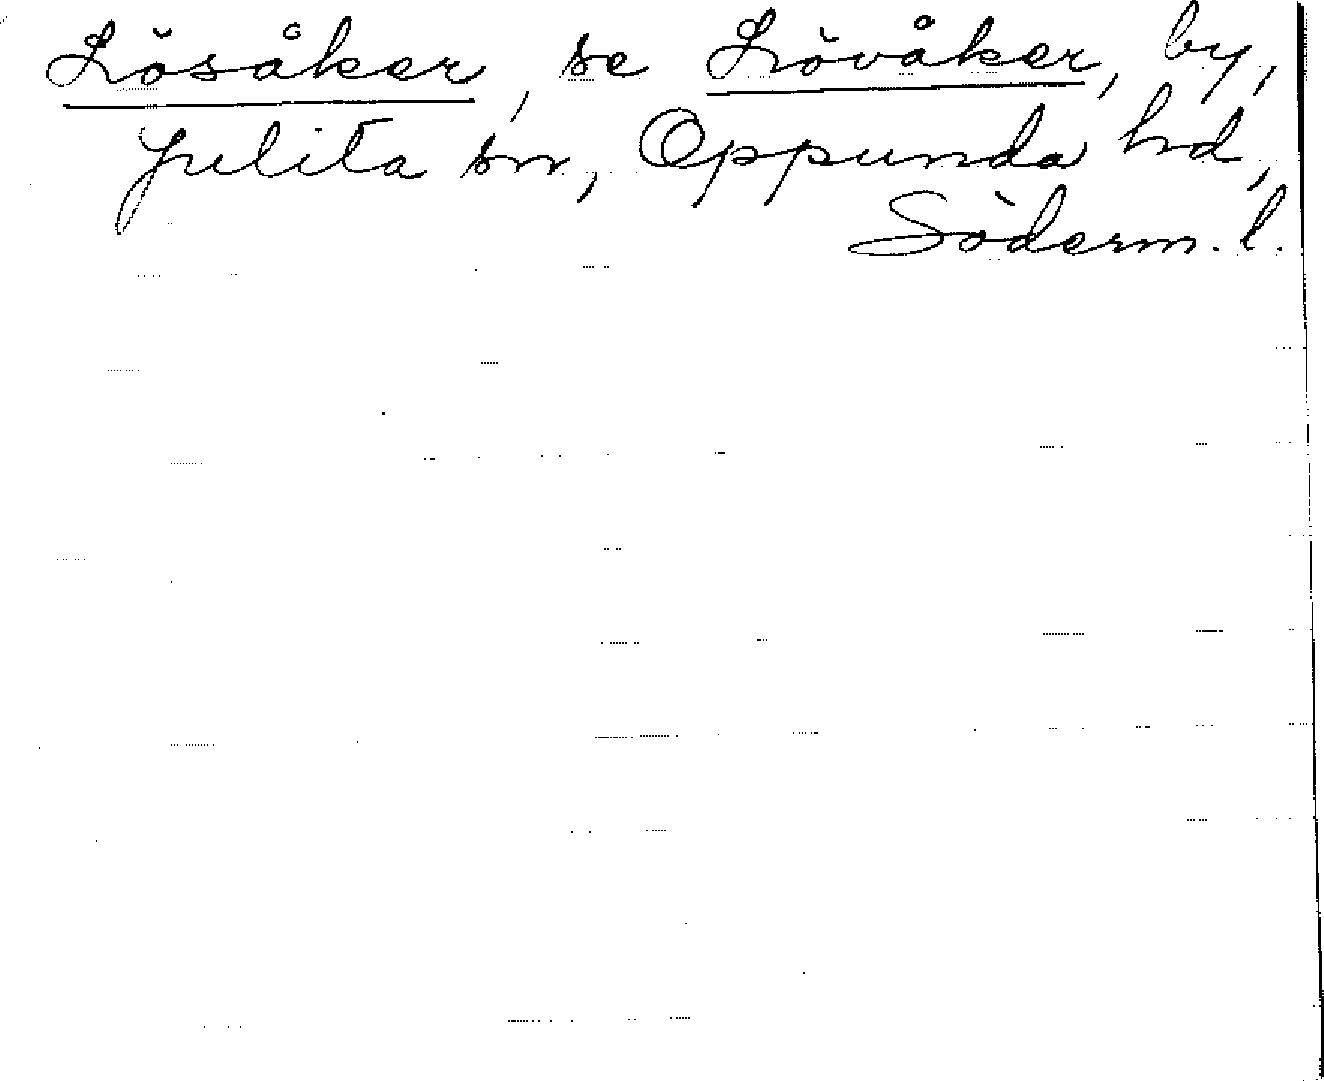 Lösåker, se Lövåker, by,
Julita sn, Oppunda hd,
Söderm. l.